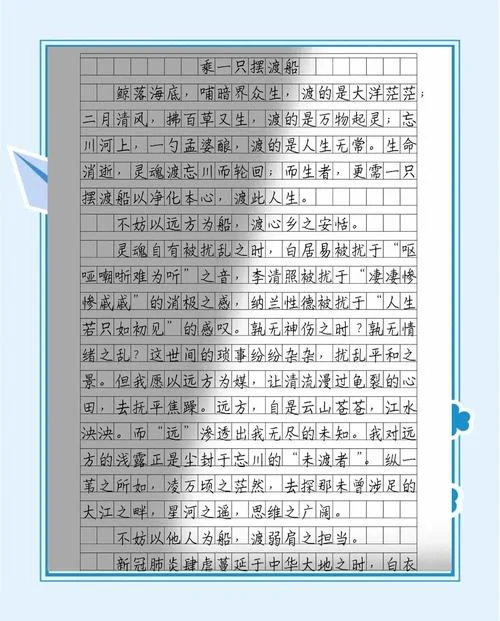 乘一只摆渡船
鲸落海底，哺暗界众生，渡的是大洋茫茫；
二月清风，拂百草又生，渡的是万物起灵；忘
川河上，一勺孟婆酿，渡的是人生无常。生命
消逝，灵魂渡忘川而轮回；而生者，更需一只
摆渡船以净化本心，渡此人生。
不妨以远方为船，渡心乡之安恬。
灵魂自有被扰乱之时，白居易被扰于“呕
哑嘲哳难为听”之音，李清照被扰于“凄凄惨
惨戚戚”的消极之感，纳兰性德被扰于“人生
若只如初见”的感叹。孰无神伤之时？孰无情
绪之乱？这世间的琐事纷纷杂杂，扰乱平和之
景。但我愿以远方为媒，让清流漫过龟裂的心
田，去抚平焦躁。远方，自是云山苍苍，江水
泱泱。而“远”渗透出我无尽的未知。我对远
方的浅露正是尘封于忘川的“未渡者”。纵一
苇之所如，凌万顷之茫然，去探那未曾涉足的
大江之畔，星河之遥，思维之广阔。
不妨以他人为船，渡弱肩之担当。
新冠肺炎肆虐蔓延于中华大地之时，白衣